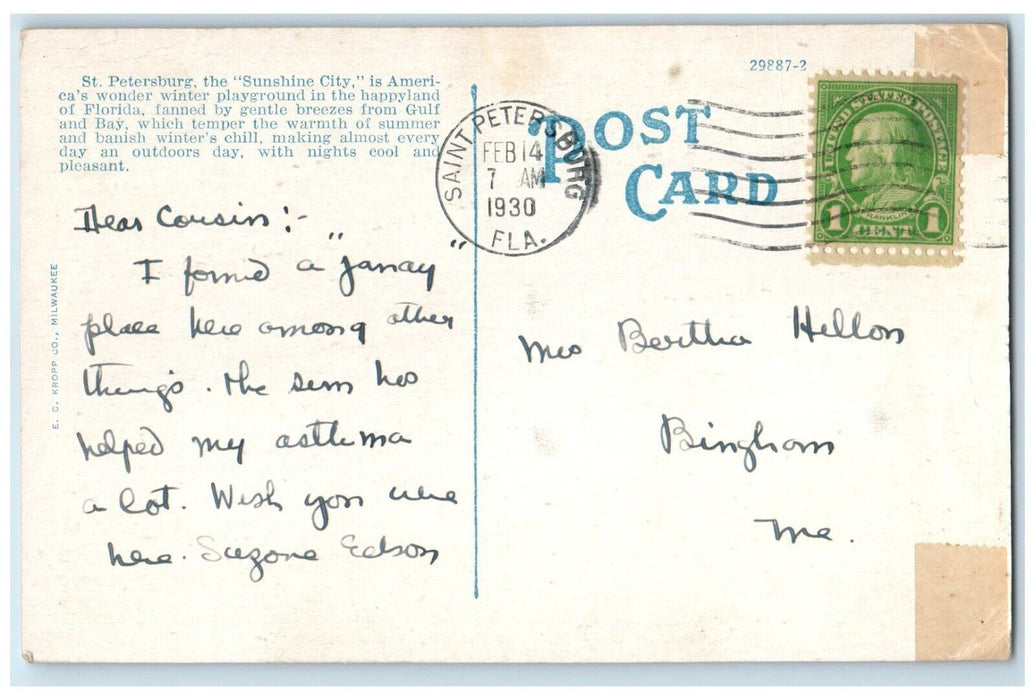 St. Petersburg, the "Sunshine City," is Ameri-
ca's wonder winter playground in the happyland
of Florida, fanned by gentle breezes from Gulf
and Bay, which temper the warmth of summer
and banish winter's chill, making almost every
day an outdoors day, with nights cool and
pleasant.
29887-2
POST
CARD
SAINT PETERSBURG
FEB 14
7 AM
1930
FLA.
UNITED STATES POSTAGE
FRANKLIN
1 CENT 1
E. C. KROPP CO., MILWAUKEE
Dear Cousin :-
I found a "
place here among other
things. The sun has
helped my asthma
a lot. Wish you were
here. Suzone Edson
Mrs Bertha Hellon
Bingham
Me.